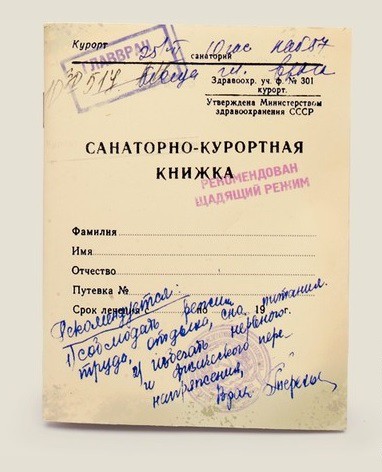 Курорт 25/VI 10 час каб 57
санаторий
ГЛАВВРАЧ
517
Здравоохр. уч. ф. № 301
курорт.
Утверждена Министерством
здравоохранения СССР
САНАТОРНО-КУРОРТНАЯ
КНИЖКА
РЕКОМЕНДОВАН
ЩАДЯЩИЙ РЕЖИМ
Фамилия
Имя
Отчество
Путевка №
Срок лечения с по 19 г.
Рекомендуется:
1) соблюдать режим
труда, отдыха, сна, питания.
2) избегать нервного
и физического пере-
напряжения,
Врач